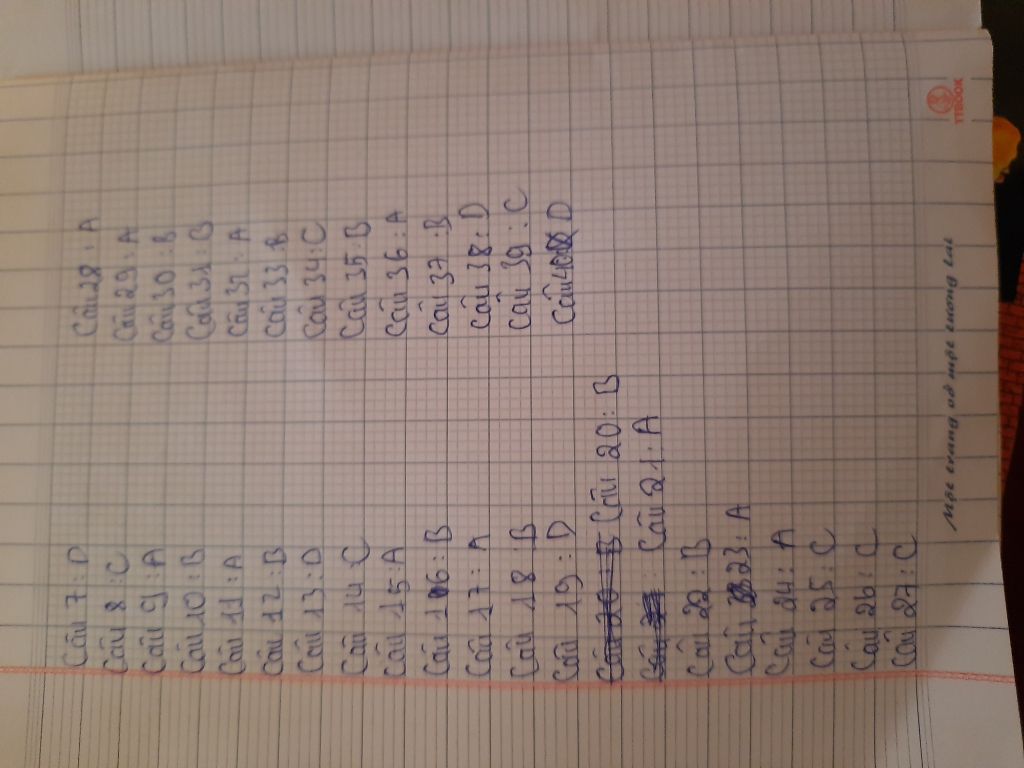 Câu 7: D
Câu 8: C
Câu 9: A
Câu 10: B
Câu 11: A
Câu 12: B
Câu 13: D
Câu 14: C
Câu 15: A
Câu 16: B
Câu 17: A
Câu 18: B
Câu 19: D
Câu 20: B
Câu 21: A
Câu 22: B
Câu 23: A
Câu 24: A
Câu 25: C
Câu 26: C
Câu 27: C
Câu 28: A
Câu 29: A
Câu 30: B
Câu 31: B
Câu 32: A
Câu 33: B
Câu 34: C
Câu 35: B
Câu 36: A
Câu 37: B
Câu 38: D
Câu 39: C
Câu 40 D
Một trang vở một tương lai